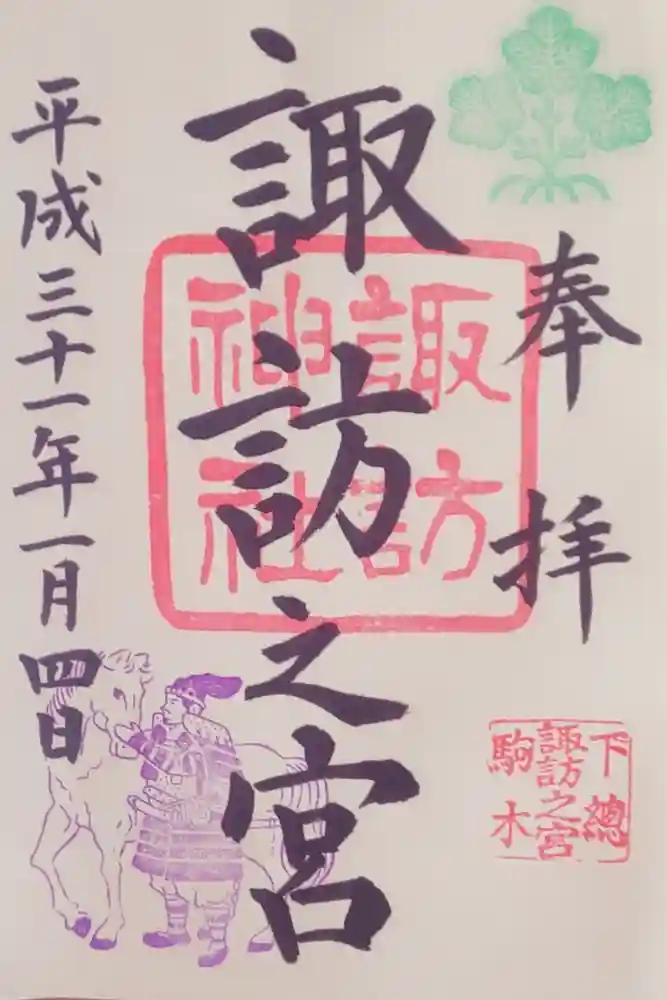 奉拝
諏訪之宮
諏訪
神社
平成三十一年一月四日
下總
諏訪之宮
駒木